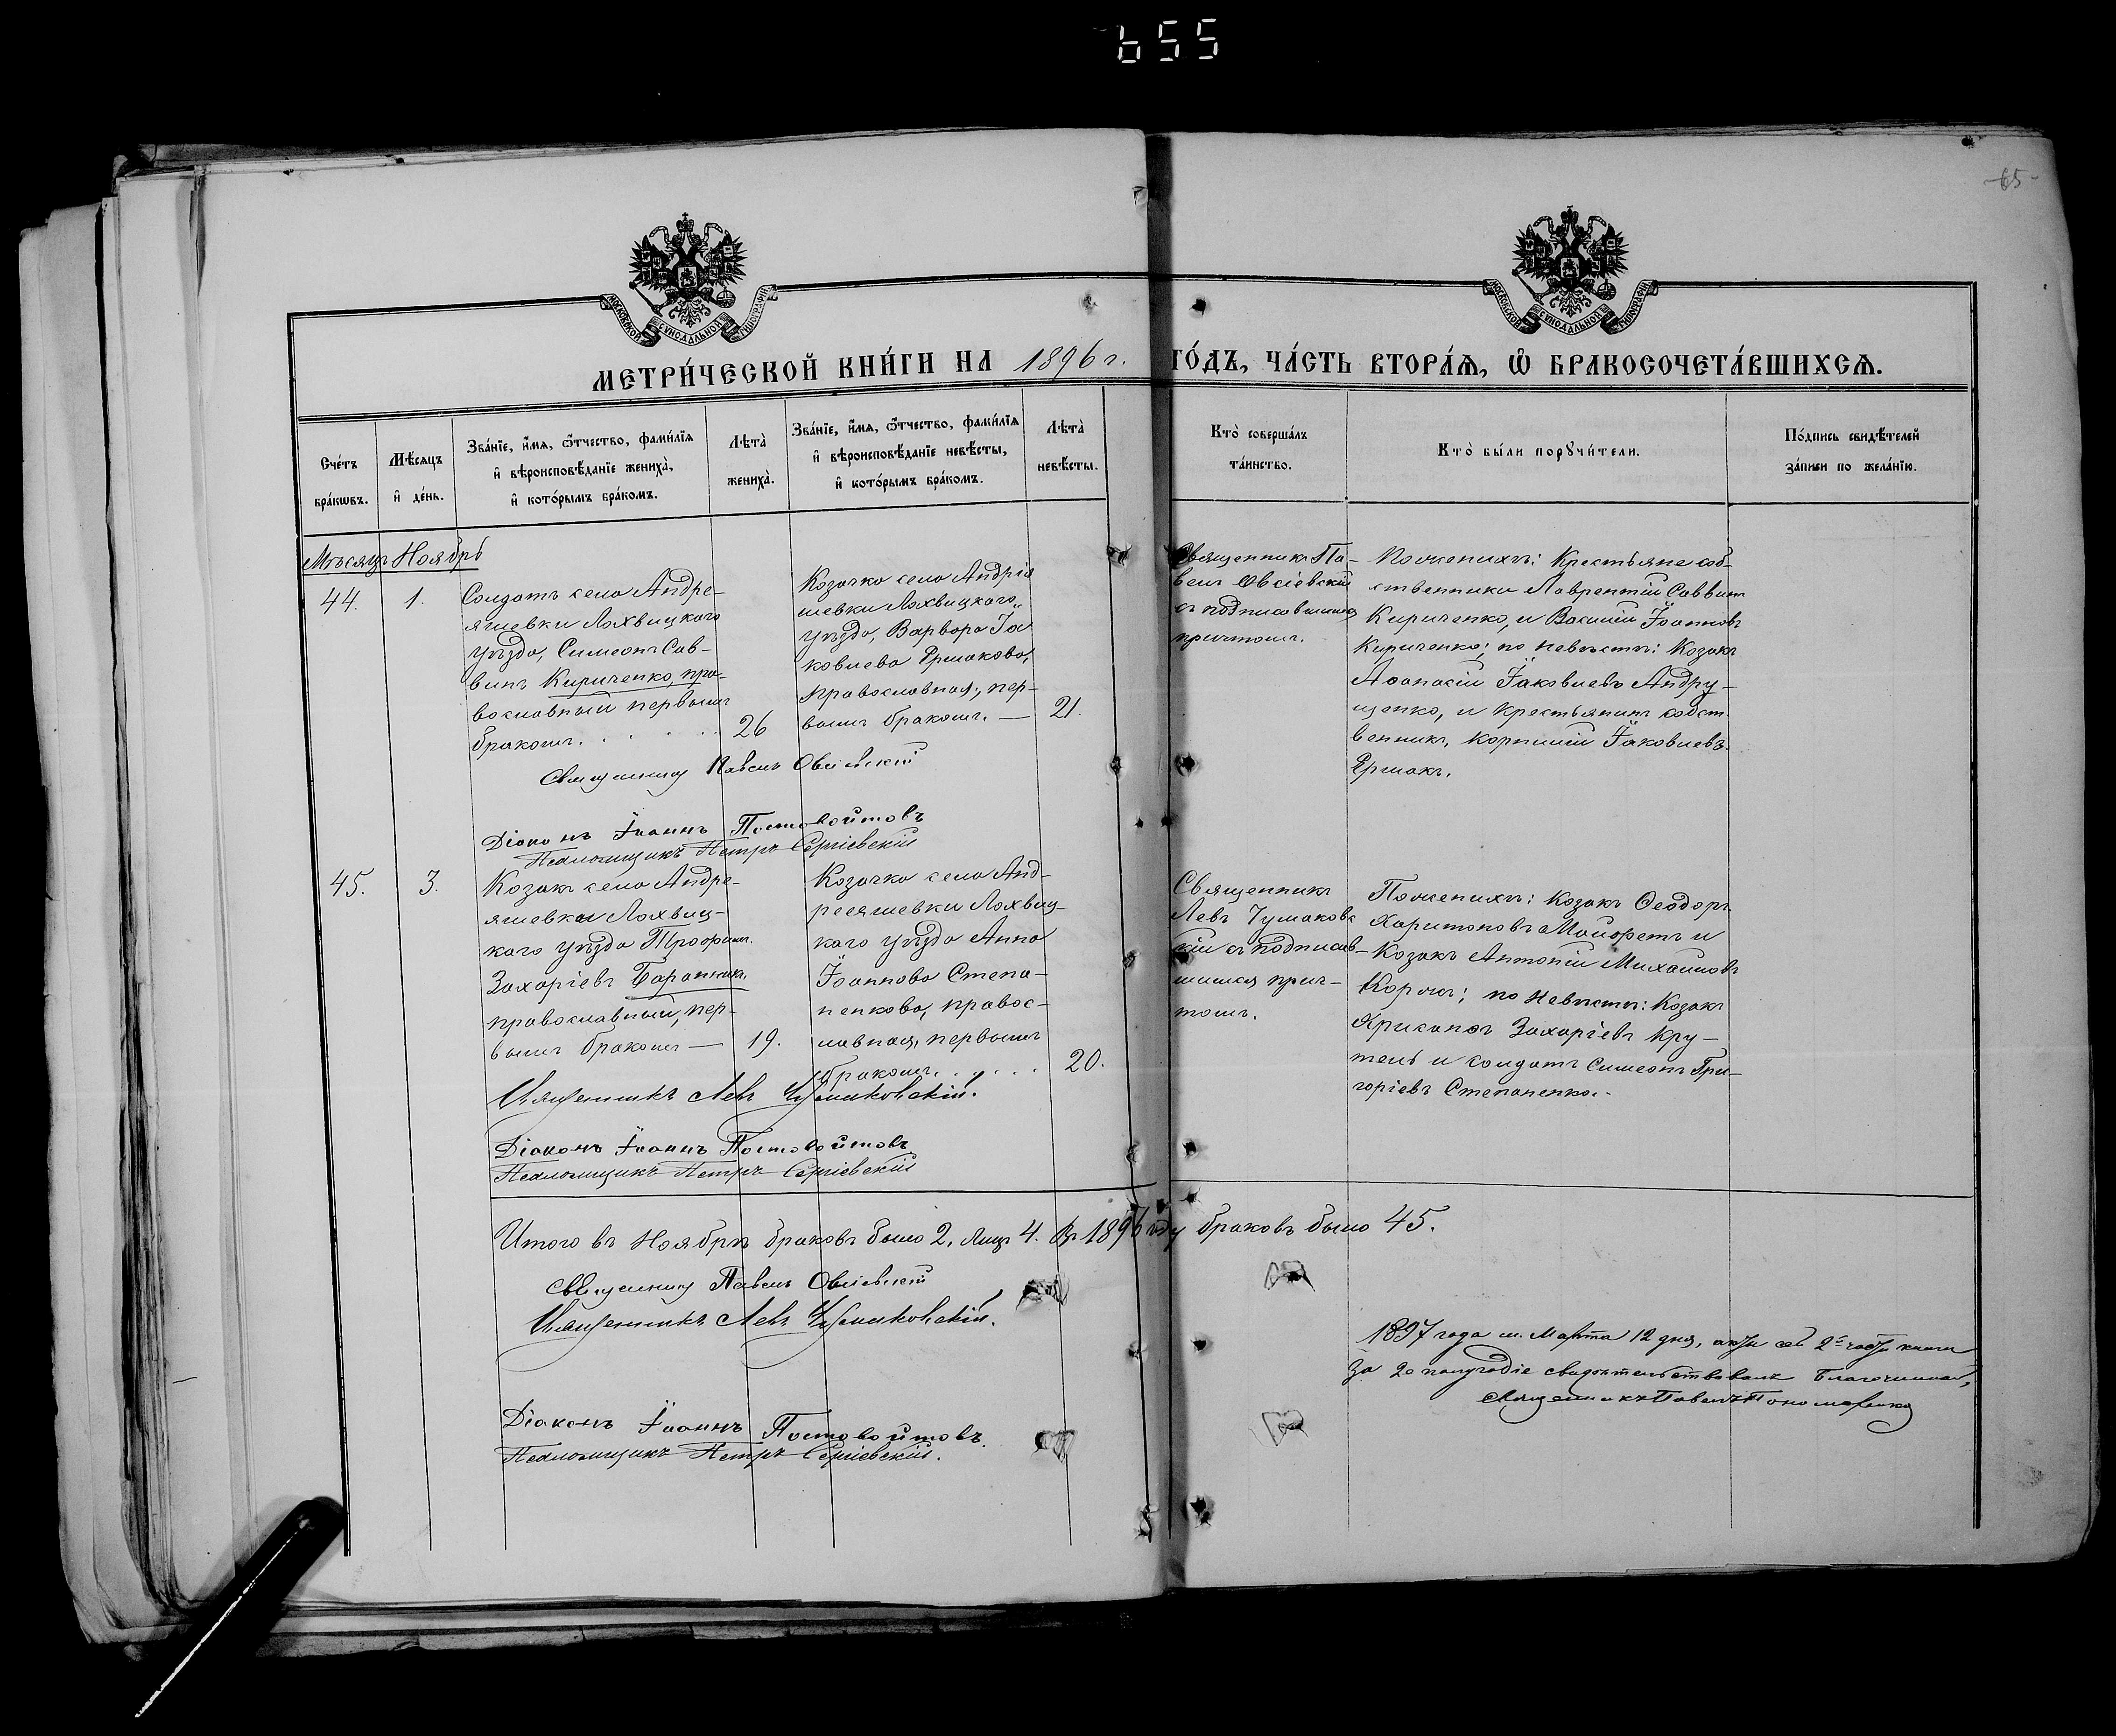 655
-65-
МОСКОВСКОЙ СѴНОДАЛЬНОЙ ТИПОГРАФІИ
МОСКОВСКОЙ СѴНОДАЛЬНОЙ ТИПОГРАФІИ
МЕТРИ́ЧЕСКОЙ КНИ́ГИ НА 1896 г. ГО́ДЪ, ЧА́СТЬ ВТОРА́Ѧ, Ѽ БРАКОСОЧЕТА́ВШИХСѦ.
Сче́тъ бра́кѡвъ.
Мѣ́сяцъ и҆ де́нь.
Зва́нїе, и҆́мя, ѻ҆́тчество, фами́лїя и҆ вѣроисповѣ́данїе жениха̀, и҆ кото́рымъ бра́комъ.
Лѣта̀ жениха̀.
Зва́нїе, и҆́мя, ѻ҆́тчество, фами́лїя и҆ вѣроисповѣ́данїе невѣ́сты, и҆ кото́рымъ бра́комъ.
Лѣта̀ невѣ́сты.
Кто̀ соверша́лъ та́инство.
Кто̀ бы́ли порꙋчи́тели.
По́дпись свидѣ́телей за́писи по жела́нїю.
Мѣсяцъ Ноябрь
44.
1.
Солдатъ села Андре-
яшевки Лохвицкаго
уѣзда, Симеонъ Сав-
винъ Кириченко, пра-
вославный первымъ
бракомъ. . . . . .
26
Козачка села Андрія
шевки Лохвицкаго
уѣзда, Варвара Іа
ковлева Ермакова,
православная, пер-
вымъ бракомъ. —
21.
Священникъ Па-
велъ Овсіевскій
съ подписавшимся
причтомъ.
По женихѣ: Крестьяне соб-
ственники Лаврентій Саввинъ
Кириченко, и Василій Іоанновъ
Кириченко; по невѣстѣ: Козакъ
Аѳанасій Іаковлевъ Андру-
щенко, и крестьянинъ собст
венникъ, Корнилій Іаковлевъ
Ермакъ.
Священникъ Павелъ Овсіевскій
Діаконъ Іоаннъ Постовойтовъ
Псаломщикъ Петръ Сергіевскій
45.
3.
Козакъ села Андре-
яшевки Лохвиц-
каго уѣзда Трофимъ
Захаріевъ Баранникъ
православный, пер-
вымъ бракомъ —
19.
Козачка села Анд-
реяшевки Лохвиц-
каго уѣзда Анна
Іоаннова Степа-
ненкова, правос-
лавная, первымъ
бракомъ. . . . .
20.
Священникъ
Левъ Чумаковс
кій съ подписав-
шимся прич-
томъ.
По женихѣ: Козакъ Ѳеодоръ
Харитоновъ Майоретъ и
Козакъ Антоній Михаиловъ
Коржъ; по невѣстѣ: Козакъ
Хрисанѳъ Захаріевъ Кру-
тель и солдатъ Симеонъ Гри-
горіевъ Степаненко.-
Священникъ Левъ Чумаковскій.
Діаконъ Іоаннъ Постовойтовъ
Псаломщикъ Петръ Сергіевскій
Итого въ Ноябрѣ браковъ было 2, лицъ 4. Въ 1896 году браковъ было 45.
Священникъ Павелъ Овсіевскій
Священникъ Левъ Чумаковскій.
Діаконъ Іоаннъ Постовойтовъ.
Псаломщикъ Петръ Сергіевскій.
1897 года м. Марта 12 дня, 2й части книги
за 2е полугодіе свидѣтельствовалъ Благочинный,
Священникъ Павелъ Пономаренко